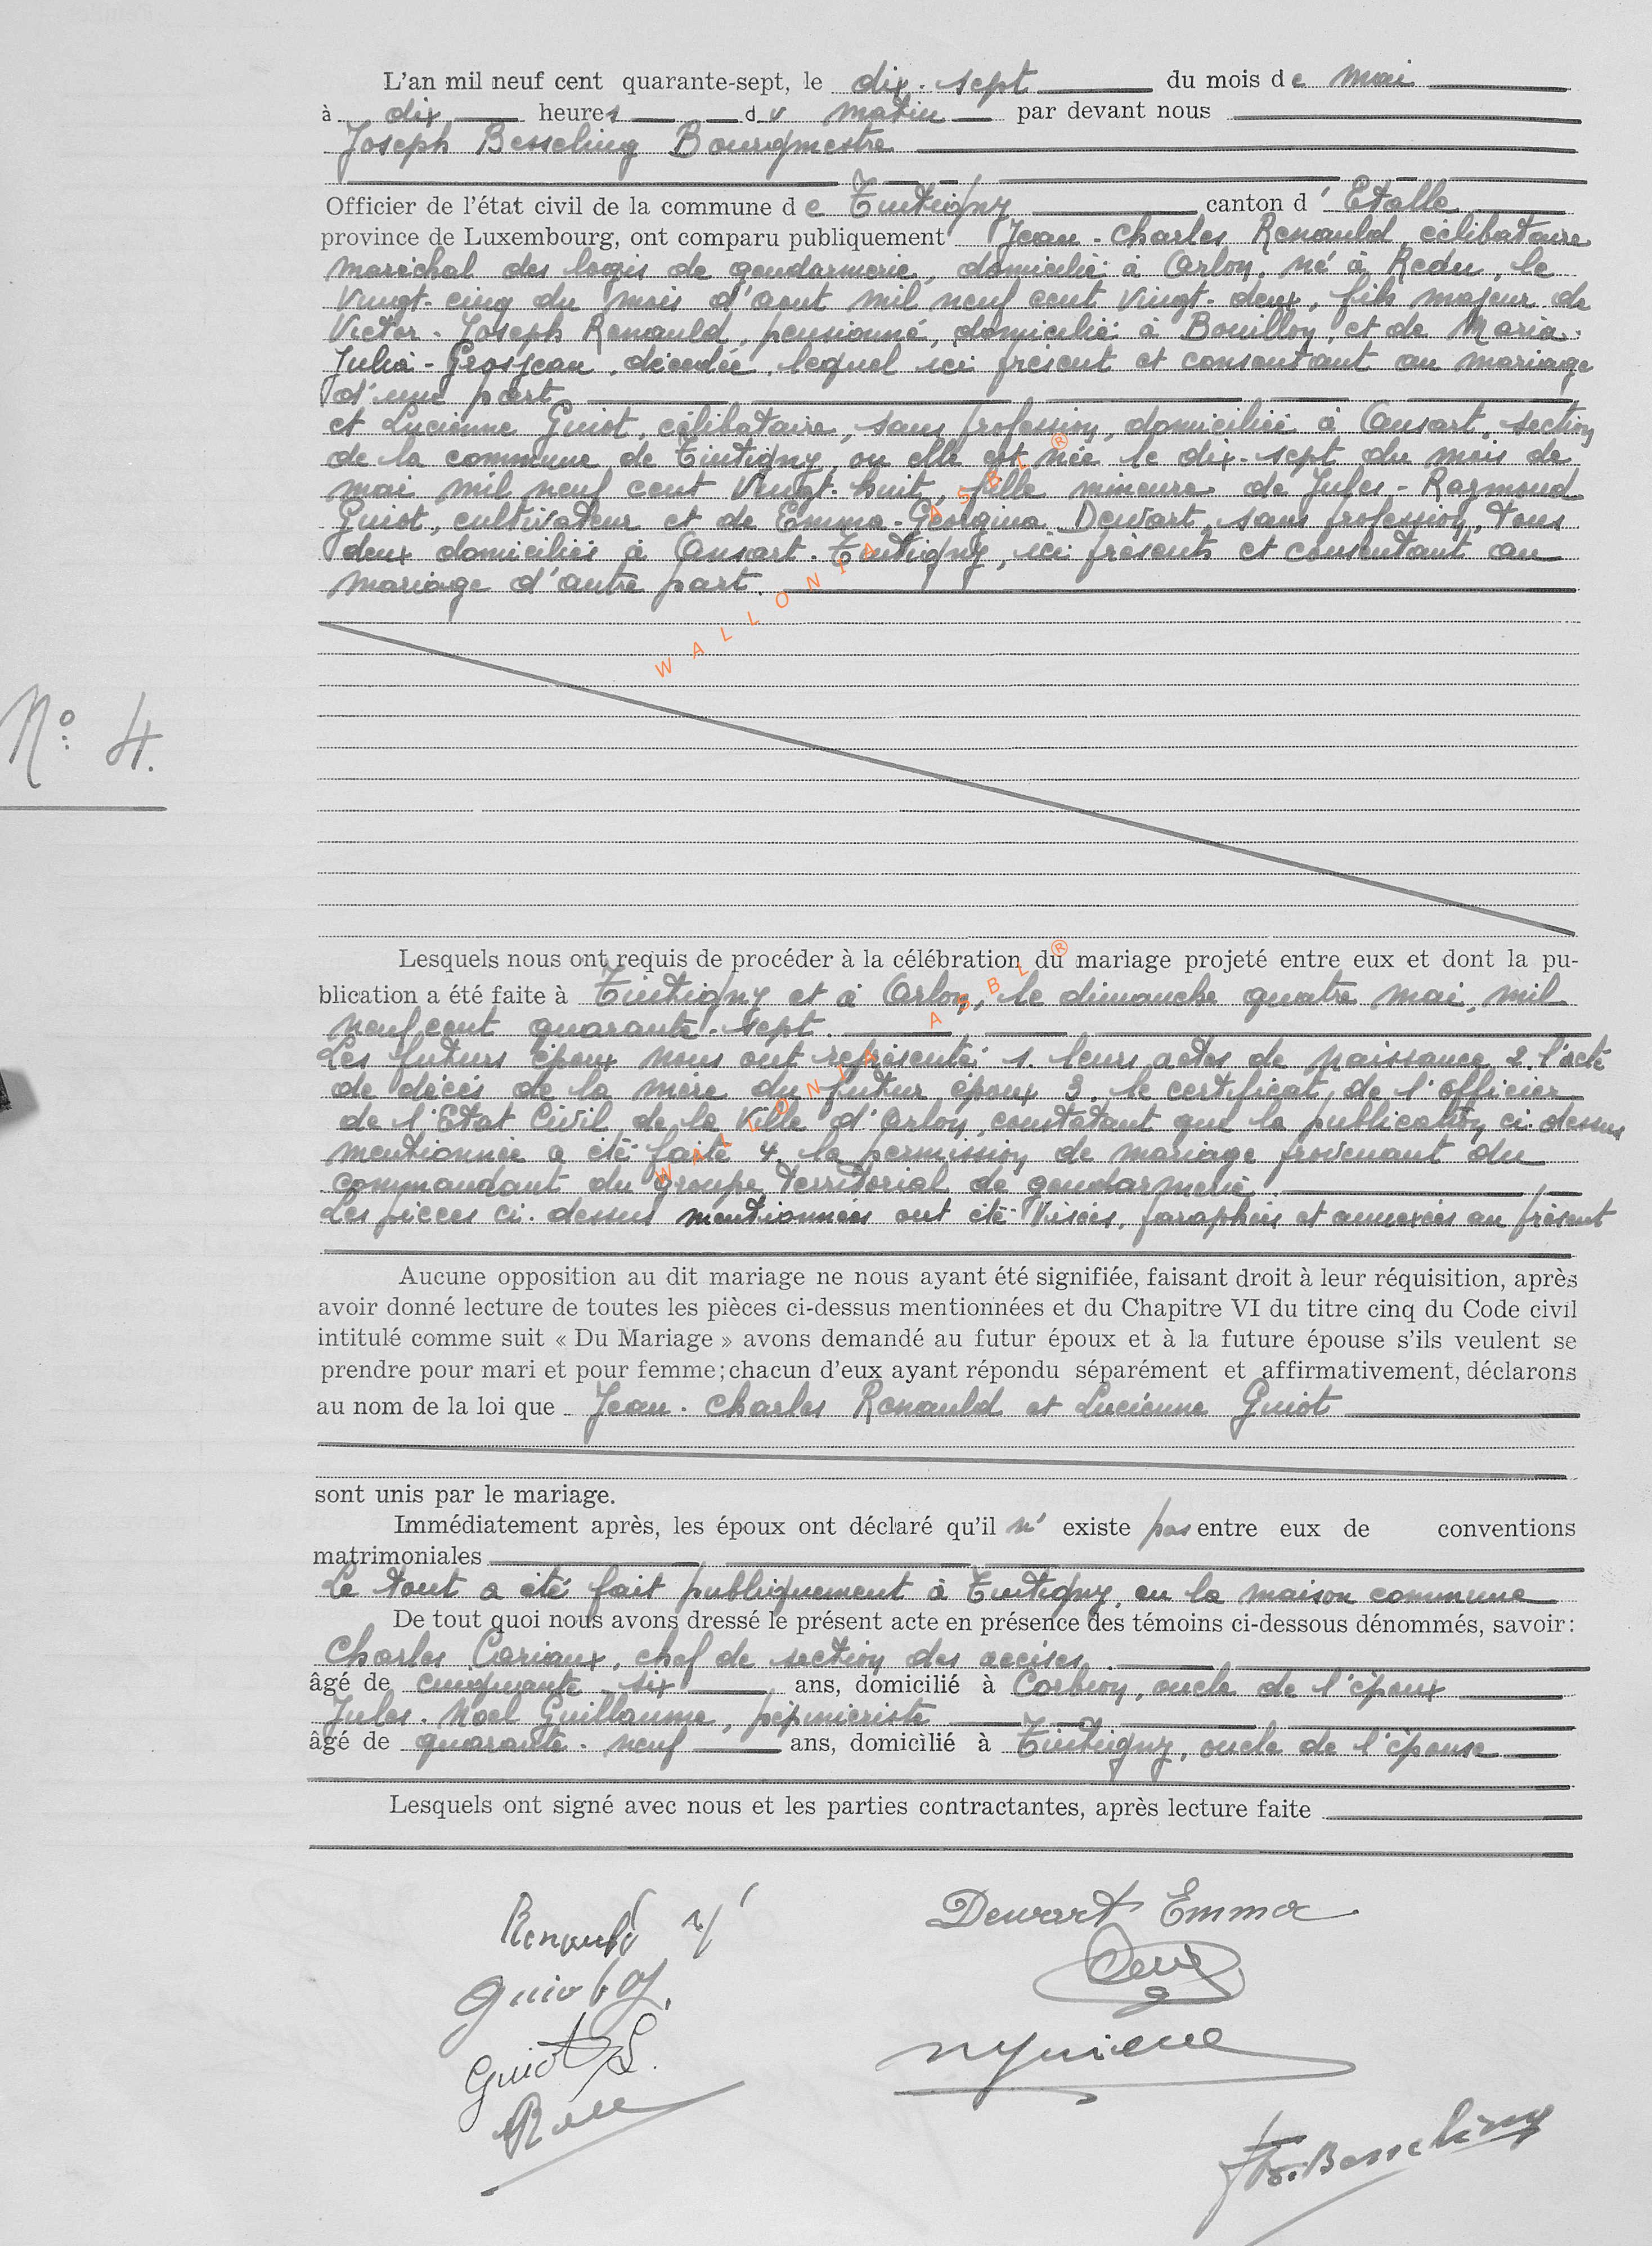 L'an mil neuf cent quarante-sept, le dix-sept du mois de mai
à dix heures du matin par devant nous
Joseph Besseling Bourgmestre
Officier de l'état civil de la commune de Tintigny canton d'Etalle
province de Luxembourg, ont comparu publiquement Jean-Charles Renauld, célibataire
maréchal des logis de gendarmerie, domicilié à Arlon, né à Redu, le
vingt-cinq du mois d'aout mil neuf cent vingt-deux, fils majeur de
Victor-Joseph Renauld, pensionné, domicilié à Bouillon, et de Maria-
Julia-Grosjean, décédée, lequel ici présent et consentant au mariage
d'une part.
et Lucienne Guiot, célibataire, sans profession, domiciliée à Ansart, section
de la commune de Tintigny, ou elle est née le dix-sept du mois de
mai mil neuf cent vingt-huit, fille mineure de Jules-Raymond
Guiot, cultivateur et de Emma-Géorgina Dewart, sans profession, tous
deux domiciliés à Ansart-Tintigny, ici présents et consentant au
mariage d'autre part.
N° 4.
Lesquels nous ont requis de procéder à la célébration du mariage projeté entre eux et dont la pu-
blication a été faite à Tintigny et à Arlon, le dimanche quatre mai, mil
neuf cent quarante-sept.
Les futurs époux nous ont représenté: 1. leurs actes de naissance 2. l'acte
de décès de la mère du futur époux 3. le certificat de l'officier
de l'Etat Civil de la Ville d'Arlon, constatant que la publication ci-dessus
mentionnée a été faite 4. la permission de mariage provenant du
commandant du groupe territorial de gendarmerie.
Les pièces ci-dessus mentionnées ont été visées, paraphées et annexées au présent
Aucune opposition au dit mariage ne nous ayant été signifiée, faisant droit à leur réquisition, après
avoir donné lecture de toutes les pièces ci-dessus mentionnées et du Chapitre VI du titre cinq du Code civil
intitulé comme suit « Du Mariage » avons demandé au futur époux et à la future épouse s'ils veulent se
prendre pour mari et pour femme; chacun d'eux ayant répondu séparément et affirmativement, déclarons
au nom de la loi que Jean-Charles Renauld et Lucienne Guiot
sont unis par le mariage.
Immédiatement après, les époux ont déclaré qu'il n' existe pas entre eux de conventions
matrimoniales
Le tout a été fait publiquement à Tintigny, en la maison commune
De tout quoi nous avons dressé le présent acte en présence des témoins ci-dessous dénommés, savoir:
Charles Cariaux, chef de section des accises.
âgé de cinquante-six ans, domicilié à Corbion, oncle de l'époux
Jules-Noel Guillaume, pépinieriste
âgé de quarante-neuf ans, domicilié à Tintigny, oncle de l'épouse
Lesquels ont signé avec nous et les parties contractantes, après lecture faite
Renauld Dewart Emma
Guiot
Guiot L.
Jos. Besseling
WALLONIA ASBL ®
WALLONIA ASBL ®